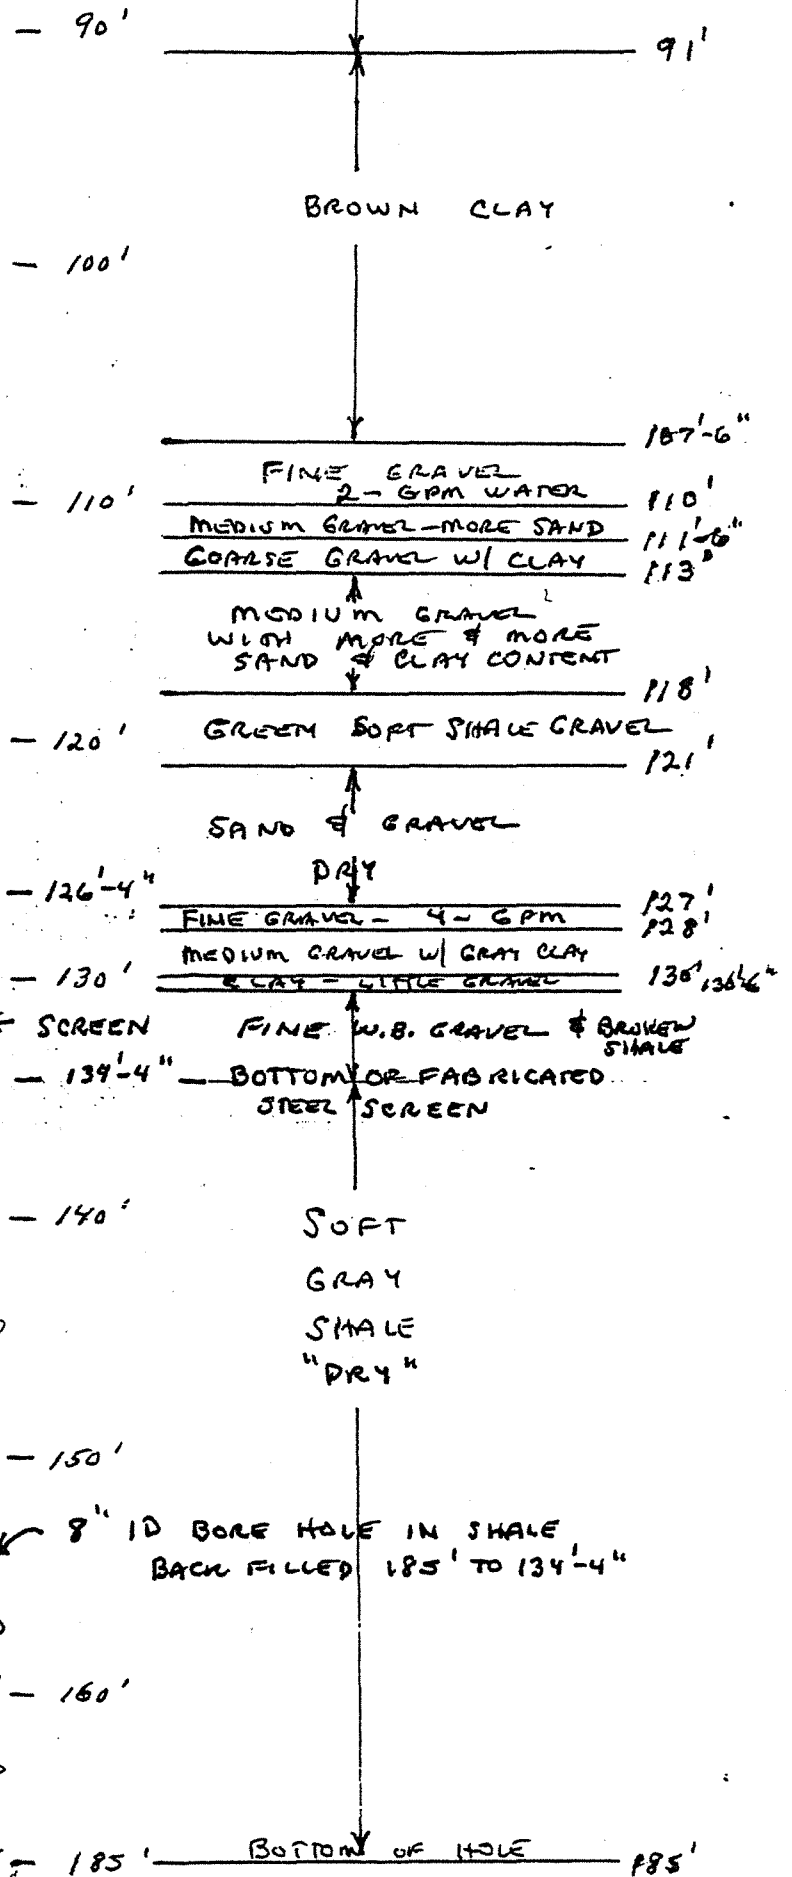 — 90'
91'
BROWN CLAY
— 100'
107'-6"
FINE GRAVEL
2 - GPM WATER
— 110' 110'
MEDIUM GRAVEL - MORE SAND
111'-6"
COARSE GRAVEL W/ CLAY
113'
MEDIUM GRAVEL
WITH MORE & MORE
SAND & CLAY CONTENT
118'
— 120' GREEN SOFT SHALE GRAVEL
121'
SAND & GRAVEL
DRY
— 126'-4" 127'
FINE GRAVEL - 4 - GPM
128'
MEDIUM GRAVEL W/ GRAY CLAY
— 130' 130'
CLAY - LITTLE GRAVEL 130'-6"
SCREEN FINE W.B. GRAVEL & BROKEN
SHALE
— 134'-4" — BOTTOM OF FABRICATED
STEEL SCREEN
— 140' SOFT
GRAY
SHALE
"DRY"
— 150'
8" ID BORE HOLE IN SHALE
BACK FILLED 185' TO 134'-4"
— 160'
— 185' BOTTOM OF HOLE 185'